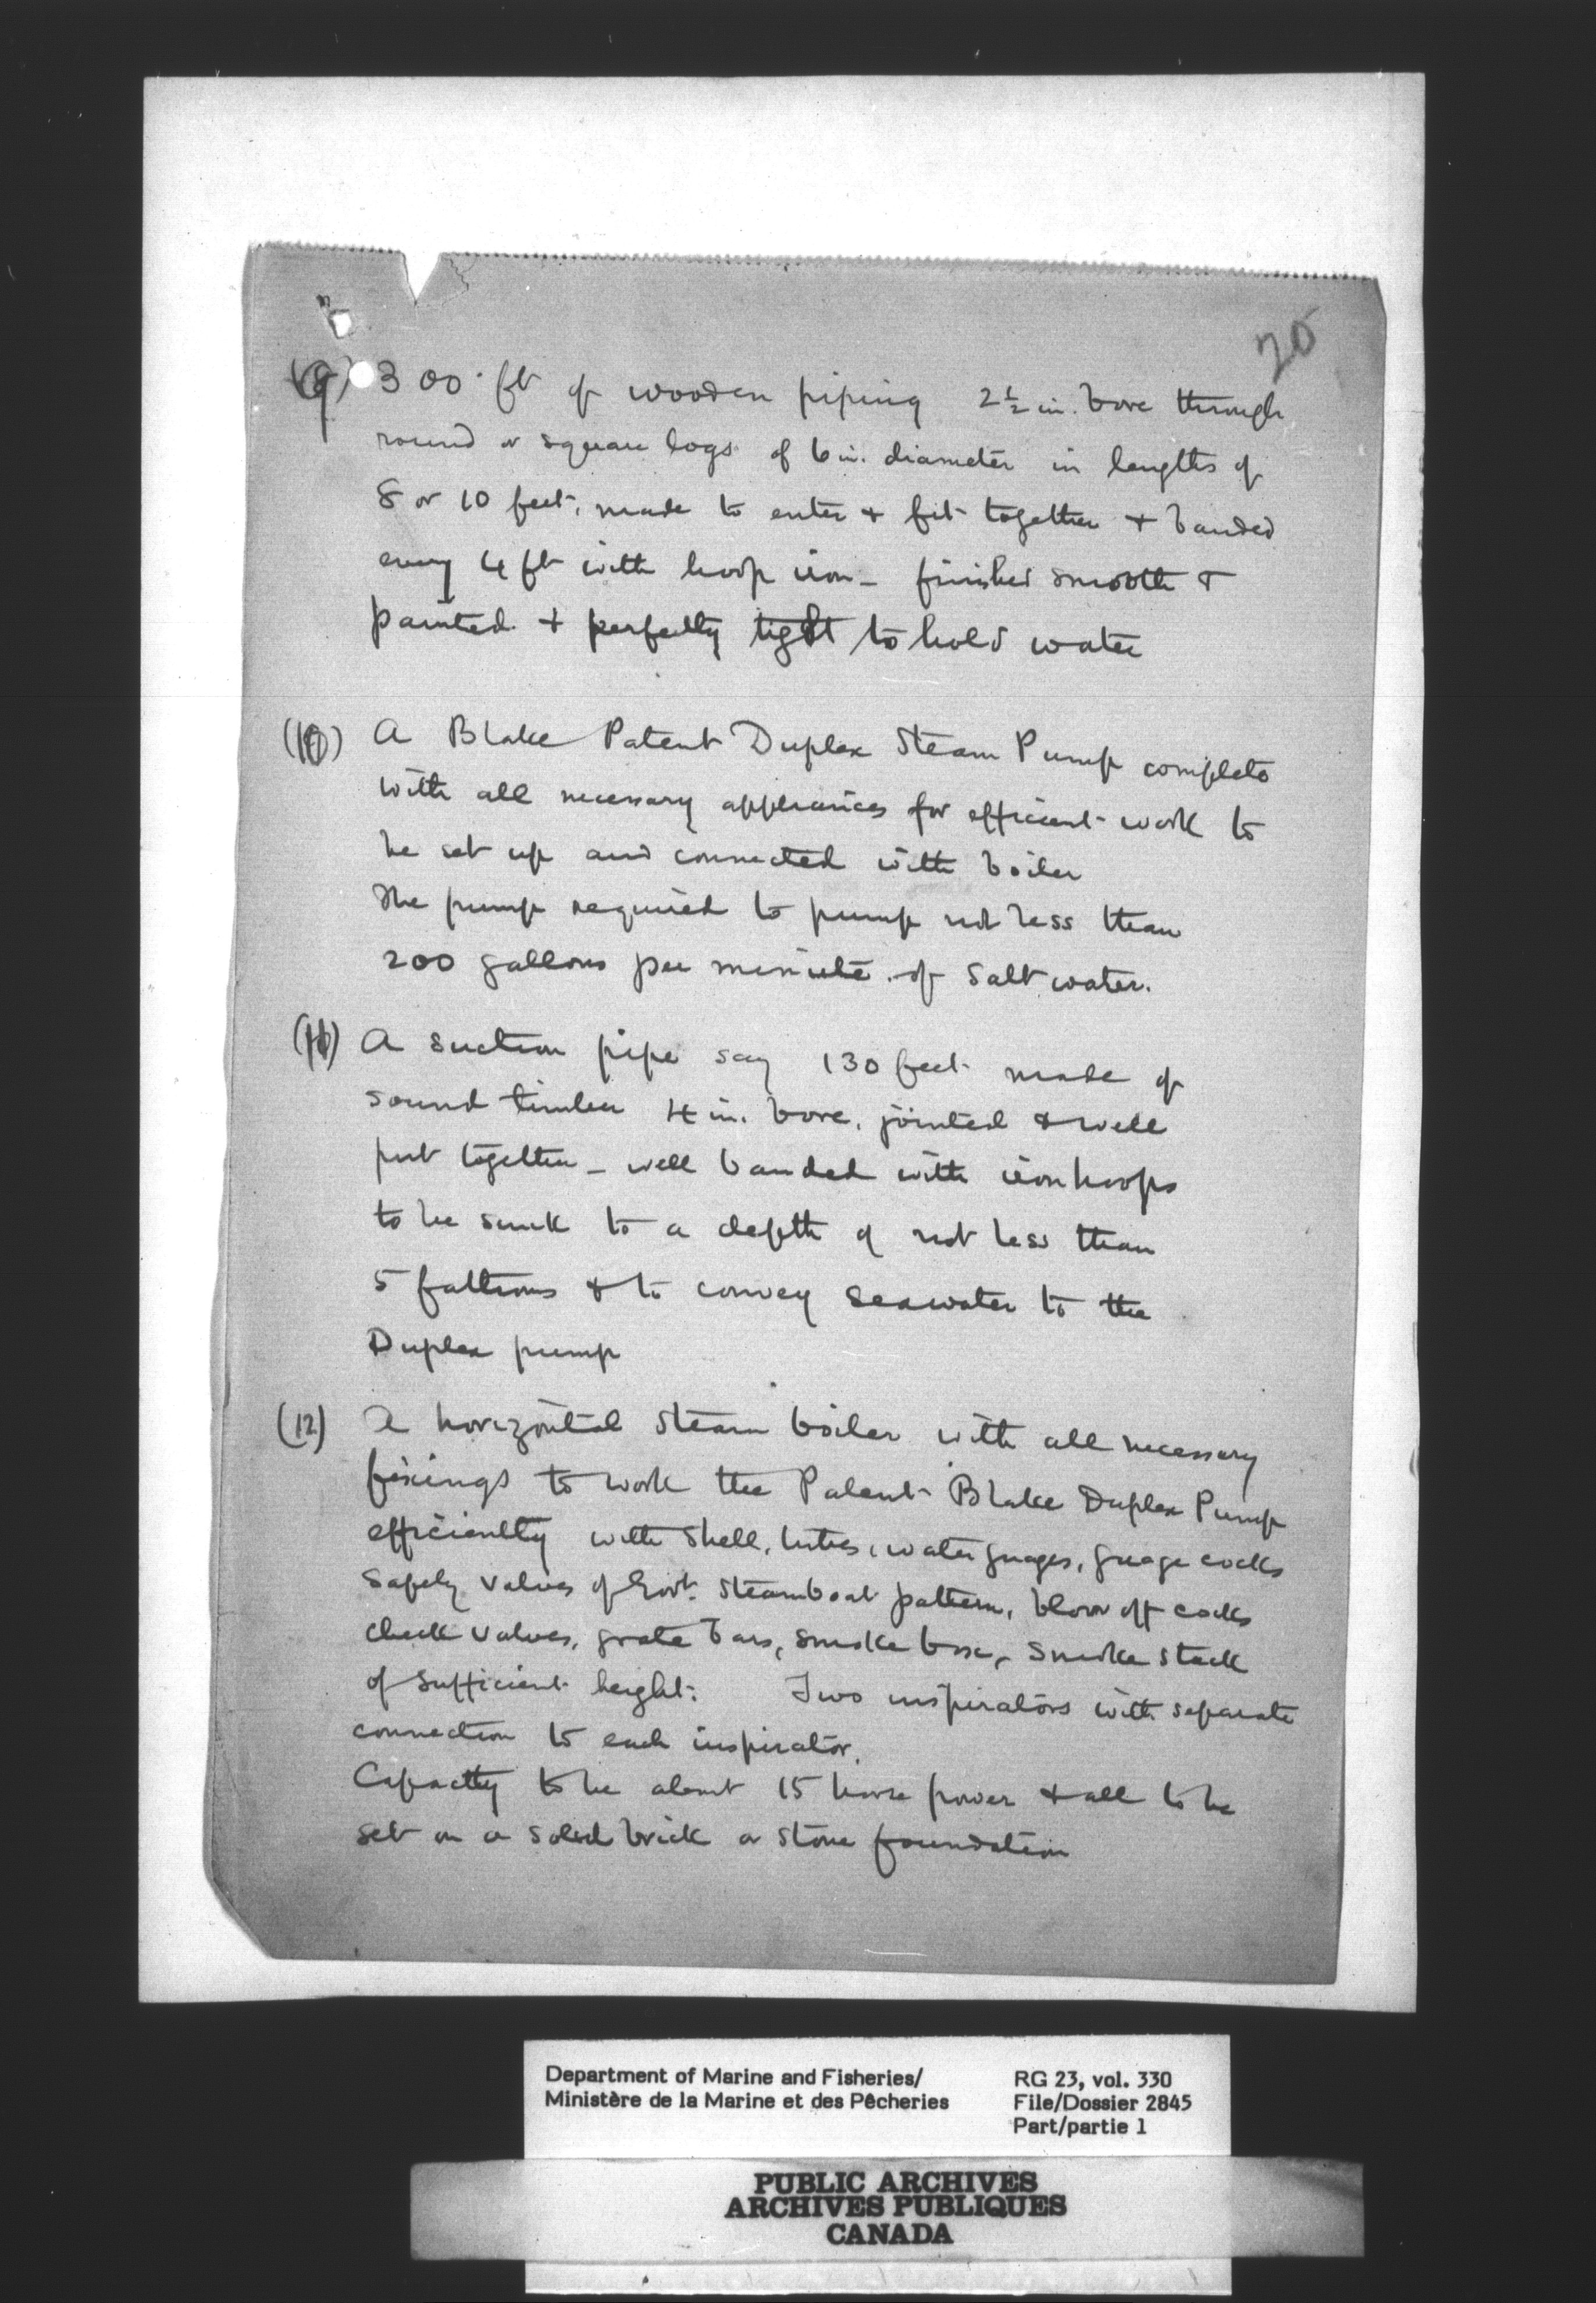 20
(9) 300 ft of wooden piping 2½ in. bore through
round or square logs of 6 in. diameter in lengths of
8 or 10 feet, made to enter + fit together + banded
every 4 ft with hoop iron - finished smooth +
painted + perfectly tight to hold water
(10) A Blake Patent Duplex Steam Pump complete
with all necessary appliances for efficient work to
be set up and connected with boiler
The pump required to pump not less than
200 gallons per minute of Salt water.
(11) A suction pipe say 130 feet made of
sound timber 4 in. bore, jointed & well
put together - well banded with iron hoops
to be sunk to a depth of not less than
5 fathoms & to convey Seawater to the
Duplex pump
(12) A horizontal steam boiler with all necessary
fixings to work the Patent Blake Duplex Pump
efficiently with Shell, tubes, water guages, guage cocks
Safety valves of Govt. Steamboat pattern, blow off cocks
check valves, grate bars, smoke box, Smoke stack
of sufficient height. Two inspirators with separate
connection to each inspirator.
Capacity to be about 15 horse power & all to be
set on a solid brick or stone foundation
Department of Marine and Fisheries/
Ministère de la Marine et des Pêcheries
RG 23, vol. 330
File/Dossier 2845
Part/partie 1
PUBLIC ARCHIVES
ARCHIVES PUBLIQUES
CANADA